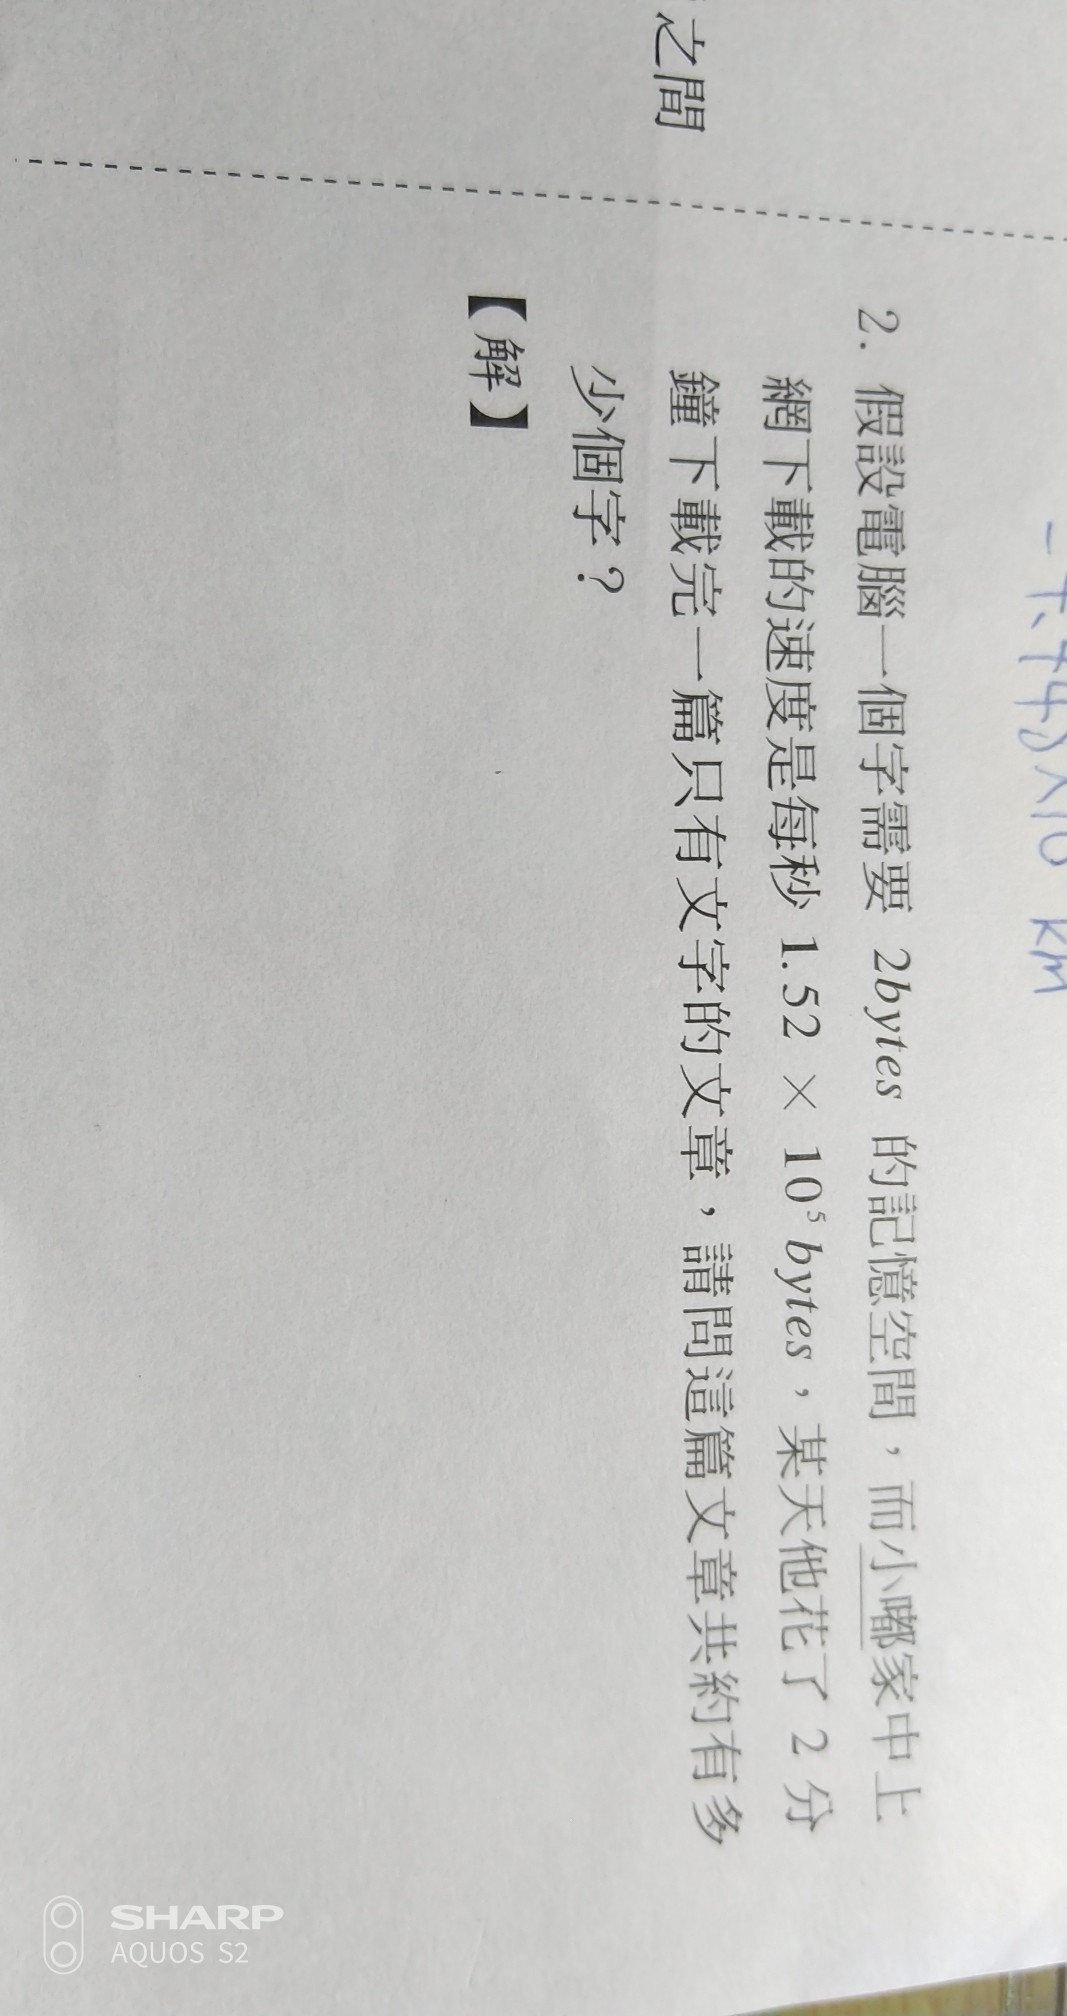 之間
km
2. 假設電腦一個字需要 2bytes 的記憶空間，而小嘟家中上
網下載的速度是每秒 1.52 × 10⁵ bytes，某天他花了 2 分
鐘下載完一篇只有文字的文章，請問這篇文章共約有多
少個字？
【解】
SHARP
AQUOS S2